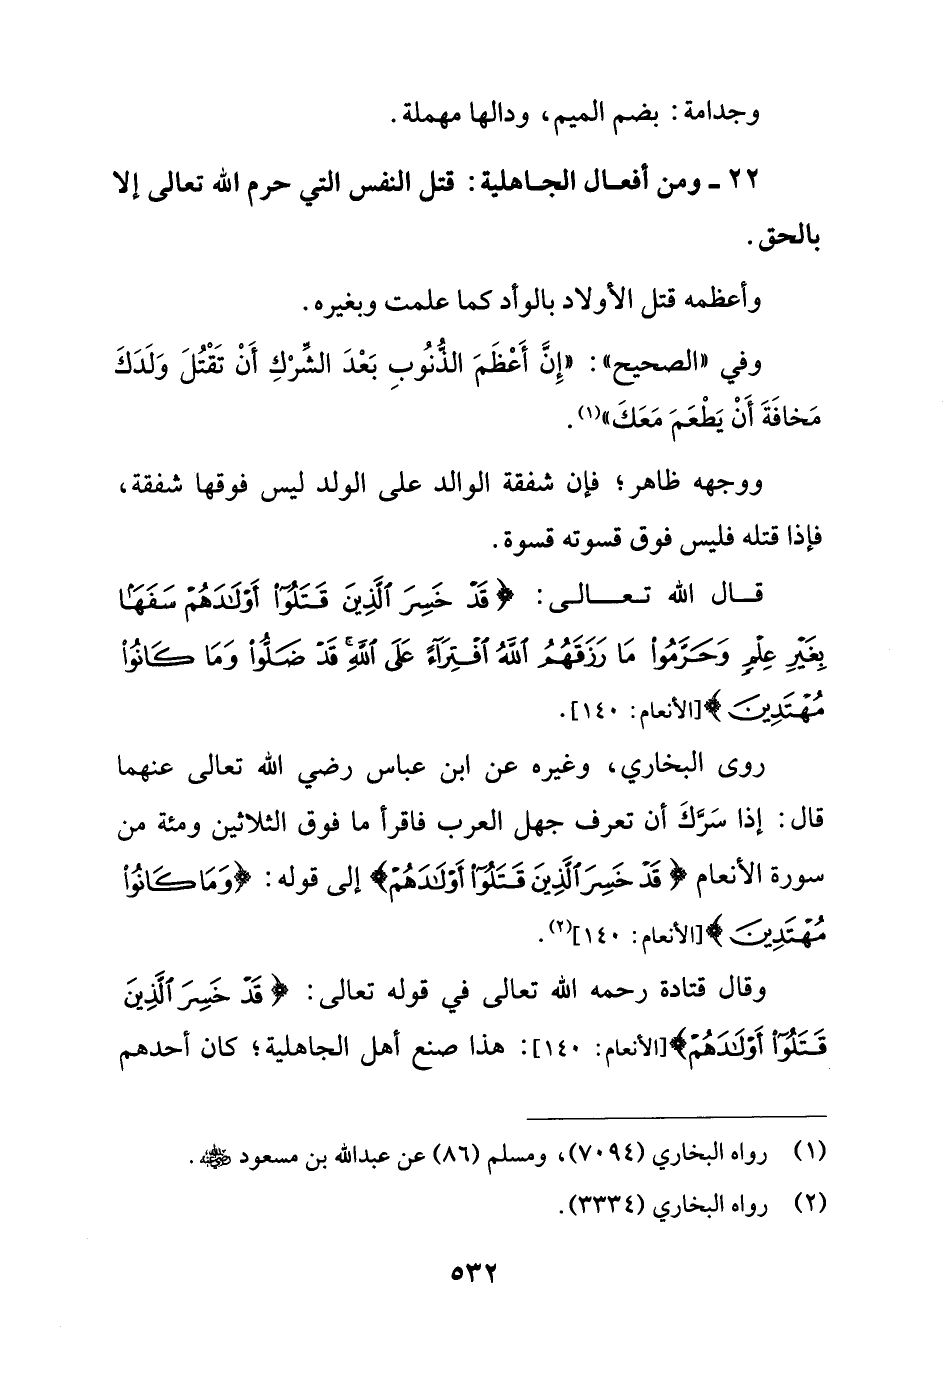 وجدامة: بضم الميم، ودالها مهملة.
٢٢ - ومن أفعال الجاهلية: قتل النفس التي حرم الله تعالى إلا
بالحق.
وأعظمه قتل الأولاد بالوأد كما علمت وبغيره.
وفي «الصحيح»: «إِنَّ أَعْظَمَ الذُّنُوبِ بَعْدَ الشِّرْكِ أَنْ تَقْتُلَ وَلَدَكَ
مَخافَةَ أَنْ يَطْعَمَ مَعَكَ»(١).
ووجهه ظاهر؛ فإن شفقة الوالد على الولد ليس فوقها شفقة،
فإذا قتله فليس فوق قسوته قسوة.
قال الله تعالى: ﴿قَدْ خَسِرَ ٱلَّذِينَ قَتَلُوٓا۟ أَوْلَٰدَهُمْ سَفَهًۢا
بِغَيْرِ عِلْمٍ وَحَرَّمُوا۟ مَا رَزَقَهُمُ ٱللَّهُ ٱفْتِرَآءً عَلَى ٱللَّهِ ۚ قَدْ ضَلُّوا۟ وَمَا كَانُوا۟
مُهْتَدِينَ﴾[الأنعام: ١٤٠].
روى البخاري، وغيره عن ابن عباس رضي الله تعالى عنهما
قال: إذا سَرَّكَ أن تعرف جهل العرب فاقرأ ما فوق الثلاثين ومئة من
سورة الأنعام ﴿قَدْ خَسِرَ ٱلَّذِينَ قَتَلُوٓا۟ أَوْلَٰدَهُمْ﴾ إلى قوله: ﴿وَمَا كَانُوا۟
مُهْتَدِينَ﴾[الأنعام: ١٤٠](٢).
وقال قتادة رحمه الله تعالى في قوله تعالى: ﴿قَدْ خَسِرَ ٱلَّذِينَ
قَتَلُوٓا۟ أَوْلَٰدَهُمْ﴾[الأنعام: ١٤٠]: هذا صنع أهل الجاهلية؛ كان أحدهم
(١) رواه البخاري (٧٠٩٤)، ومسلم (٨٦) عن عبدالله بن مسعود ﵁.
(٢) رواه البخاري (٣٣٣٤).
٥٣٢